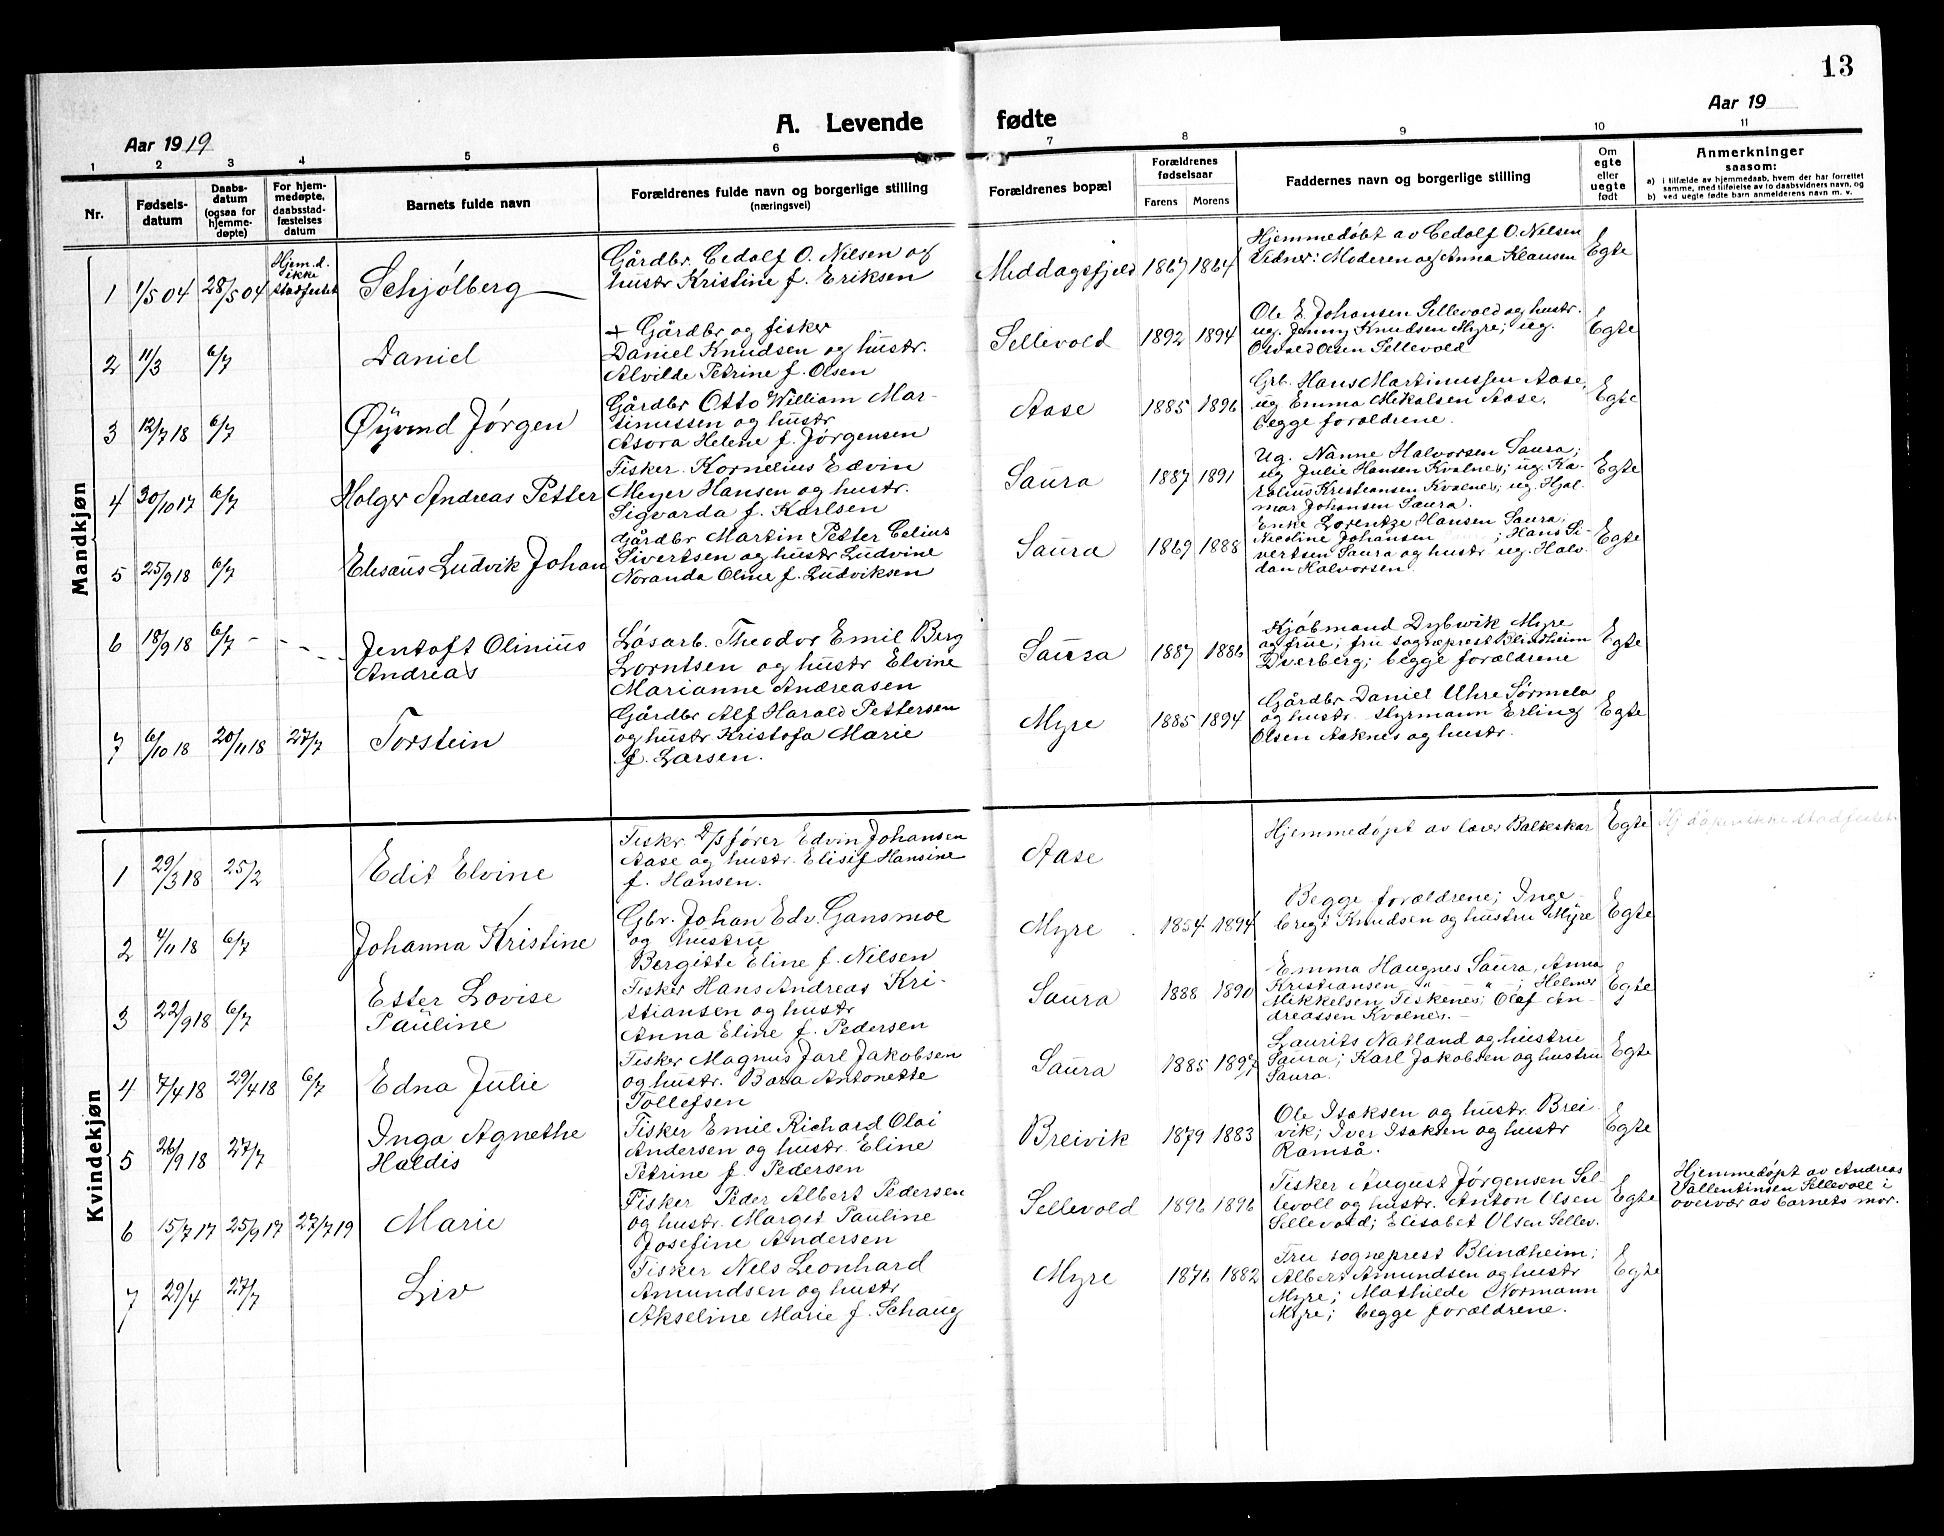 13
A. Levende fødte
Aar 1919
Aar 19
1 2 3 4 5 6 7 8 9 10 11
Nr.
Fødsels-
datum
Daabs-
datum
(ogsaa for
hjemme-
døpte)
For hjem-
medøpte,
daabsstad-
fæstelses
datum
Barnets fulde navn
Forældrenes fulde navn og borgerlige stilling
(næringsvei)
Forældrenes bopæl
Forældrenes
fødselsaar
Farens Morens
Faddernes navn og borgerlige stilling
Om
egte
eller
uegte
født
Anmerkninger
saasom:
a) i tilfælde av hjemmedaab, hvem der har forrettet
samme, med tilføielse av to daabsvidners navn, og
b) ved uegte fødte barn anmelderens navn m. v.
Mandkjøn
1 1/5 04 28/5 04
Hjem.d.
ikke
stadfestet
Schjølberg
Gårdbr. Cedolf O. Nilsen og
hustr Kristine f. Eriksen
Middagsfjeld 1867 1864
Hjemmedøbt av Cedolf O. Nilsen
Vidner: Moderen og Anna Klausen
Egte
2 11/3 6/7
Daniel
+ Gårdbr og fisker
Daniel Knudsen og hustr.
Alvilde Petrine f. Olsen
Sellevold 1892 1894
Ole E. Johansen Sellevold og hustr.
ug. Jenny Knudsen Myre; ug.
Osvald Olsen Sellevold
Egte
3 12/7 18 6/7
Øyvind Jørgen
Gårdbr Otto William Mar-
tinussen og hustr
Asora Helene f. Jørgensen
Aase 1885 1896
Grb. Hans Martinussen Aase,
ug Emma Mikalsen Aase,
begge forældrene.
Egte
4 30/10 17 6/7
Holger Andreas Petter
Fisker Kornelius Edvin
Meyer Hansen og hustr.
Sigvarda f. Karlsen
Saura 1887 1891
Ug. Nanne Halvorsen Saura;
ug Julie Hansen Kvalnes; ug. Ka-
rolius Kristiansen Kvalnes; ug. Hjal-
mar Johansen Saura.
Egte
5 25/9 18 6/7
Elisæus Ludvik Johan
Gårdbr Martin Petter Celius
Sivertsen og hustr Ludvine
Noranda Oline f. Ludviksen
Saura 1869 1888
Enke Lorentze Hansen Saura,
Nicoline Johansen ; Hans Si-
vertsen Saura og hustr ug. Halv-
dan Halvorsen.
Egte
6 18/9 18 6/7 - - - -
Jentoft Olinius
Andreas
Løsarb. Theodor Emil Berg
Lorntsen og hustr Elvine
Marianne Andreasen
Saura 1887 1886
Kjøbmand Dybwik Myre
og frue; fru sogneprest Blindheim
Dverberg; begge forældrene
Egte
7 6/10 18 20/11 18 27/7
Torstein
Gårdbr Alf Harald Pettersen
og hustr Kristofa Marie
f. Larsen.
Myre 1885 1894
Gårdbr Daniel Uhre Sørmela
og hustr. Styrmann Erling
Olsen Aaknes og hustr.
Egte
Kvindekjøn
1 29/3 18 25/2
Edit Elvine
Fiskr. D/s fører Edvin Johansen
Aase og hustr. Elisif Hansine
f. Hansen.
Aase
Hjemmedøpt av lærer Balteskar
Egte
Hj døpt ikke stadfestet
2 4/11 18 6/7
Johanna Kristine
Gbr. Johan Edv. Gansmoe
og hustru
Bergitte Eline f. Nilsen
Myre 1854 1894
Begge forældrene; Inge-
bregt Knudsen og hustru Myre
Egte
3 22/9 18 6/7
Ester Lovise
Pauline
Fisker Hans Andreas Kri-
stiansen og hustr
Anna Eline f. Pedersen
Saura 1888 1890
Emma Haugnes Saura, Anna
Kristiansen " - " - ; Helmer
Mikkelsen Fiskenes; Olaf An-
dreassen Kvalnes. -
Egte
4 7/4 18 29/4 18 6/7
Edna Julie
Fisker Magnus Jarl Jakobsen
og hustr. Bara Antonette
Tollefsen
Saura 1885 1897
Laurits Natland og hustru
Saura; Karl Jakobsen og hustru
Saura.
Egte
5 26/9 18 27/7
Inga Agnethe
Haldis
Fisker Emil Richard Olai
Andersen og hustr. Eline
Petrine f. Pedersen
Breivik 1879 1883
Ole Isaksen og hustr. Brei-
vik; Iver Isaksen og hustr
Ramså.
Egte
6 15/7 17 25/9 17 27/7 19
Marie
Fisker Peder Albert Pedersen
og hustr. Marget Pauline
Josefine Andersen
Sellevold 1896 1896
Fisker August Jørgensen Sel-
levoll og hustr. Anton Olsen
Sellevold; Elisabet Olsen Sellev.
Egte
Hjemmedøpt av Andreas
Vallentinsen Sellevoll i
overvær av barnets mor.
7 29/4 27/7
Liv
Fisker Nels Leonhard
Amundsen og hustr
Akseline Marie f. Schaug
Myre 1876 1882
Fru sogneprest Blindheim;
Albert Amundsen og hustr
Myre; Mathilde Normann
Myre; begge forældrene.
Egte